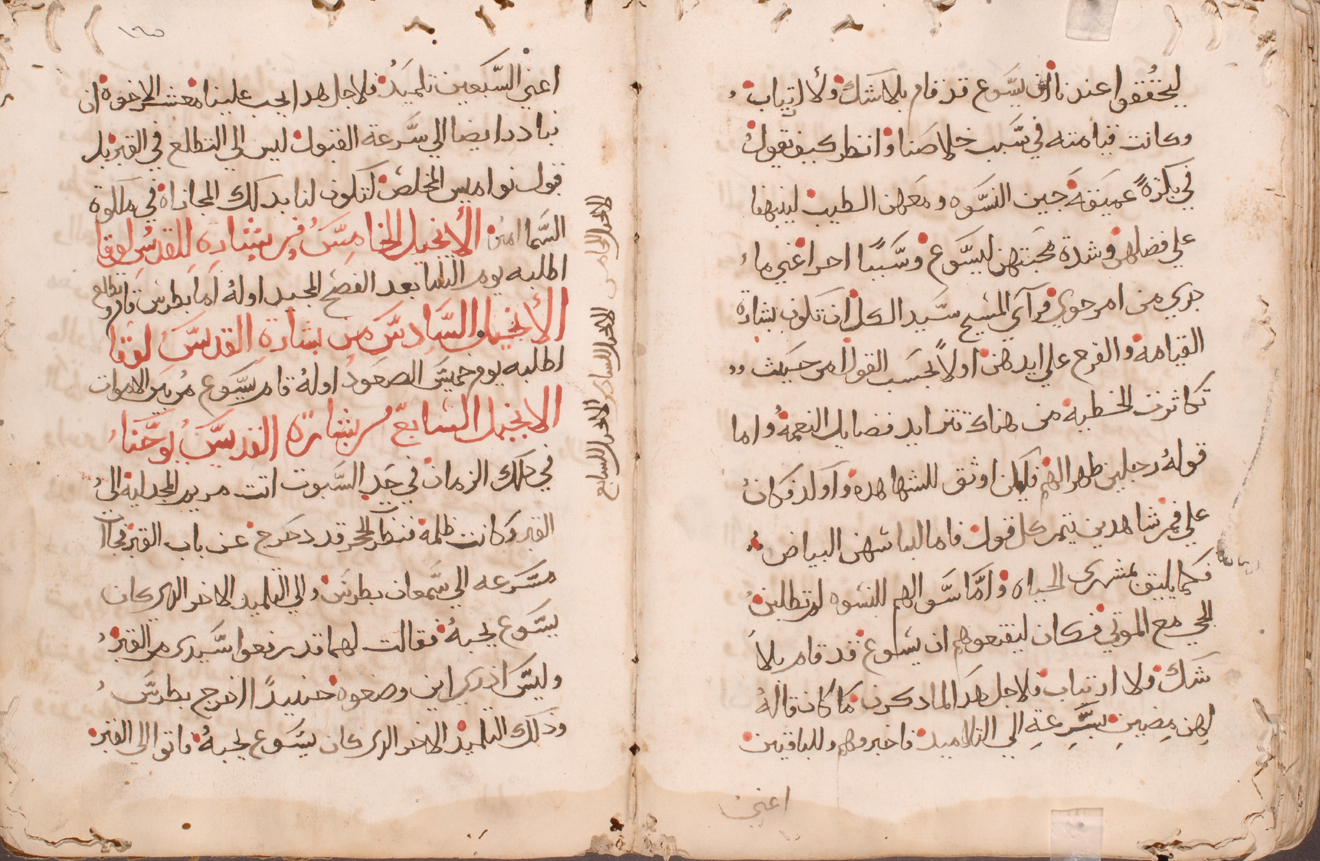 ليحققوا عندنا ان يسوع قد قام بلا شك ولا ارتياب
وكانت قيامته في سبب خلاصنا وانظر كيف يقول
في بكرةً عميقة جين النسوه ومعهن الطيب لينبهنا
علي فضلهن وشدة محبتهن ليسوع وسببًا اخر اعني ما
جري من امر حوي فراي المسيح سيد الكل ان تكون بشارة
القيامة والفرح علي ايدهن اولاً بحسب القول من حيث
تكاثرت الخطية من هناك تتزايد فضايل النعمة واما
قوله رجلين ظهرا لهم فليكن اوثق للشهاهده واوكد فكان
علي فم شاهدين يتم كل قول فاما لباسهن البياض
فكما يليق بمشهري الحياه واما سوالهم للنسوه لم تطلبن
الحي مع الموتي فكان ليقنعوهم ان يسوع قد قام بلا
شك ولا ارتياب فلاجل هذا لما ذكرن ما كان قاله
لهن مضين بسرعةِ الي التلاميد فاخبروهم وللباقين
اعني
١٦٥
اعني السبعين تلميدُ فلاجل هدا يجب علينا معشر الاخوة ان
نبادر ايضا الي سرعة القبول ليس الي التطلع في القبر بل
قبول نواميس المخلص لتكون لنا بدلك المجازاة في ملكوة
السما امين الأنجيل الخامسُ من بشارة للقدس لوقا
اطلبه يوم الثلثا بعد الفصح المجيد اولهُ اما بطرس قام وتطلع
الأنجيل السادس من بشارة القدسَ لوقا
اطلبه يوم خميس الصعود اولهُ قام يسوع من بين الاموات
الانجيل السابع من بشارة القديسَ يوحنا
في دلك الزمان في حد السبوت اتت مريم المجدلية الي
القبر وكانت ظلمة فنظر الحجر قد دحرج عن باب القبر فجآت
مسرعه الي سمعان بطرس والي التلميد الاخر الدي كان
يسوع يحبهُ فقالت لهما قد رفعوا سيدي من القبر
وليس ادري اين وضعوه حينيدًا اخرج بطرس
ودلك التلميد الاخر الدي كان يسوع يحبهُ فاتوا الي القبر
الانجيل الخامس
الانجيل السادس
الانجيل السابع